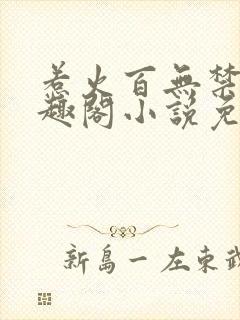 惹火百無禁
趣閣小說免
新島一 左東武